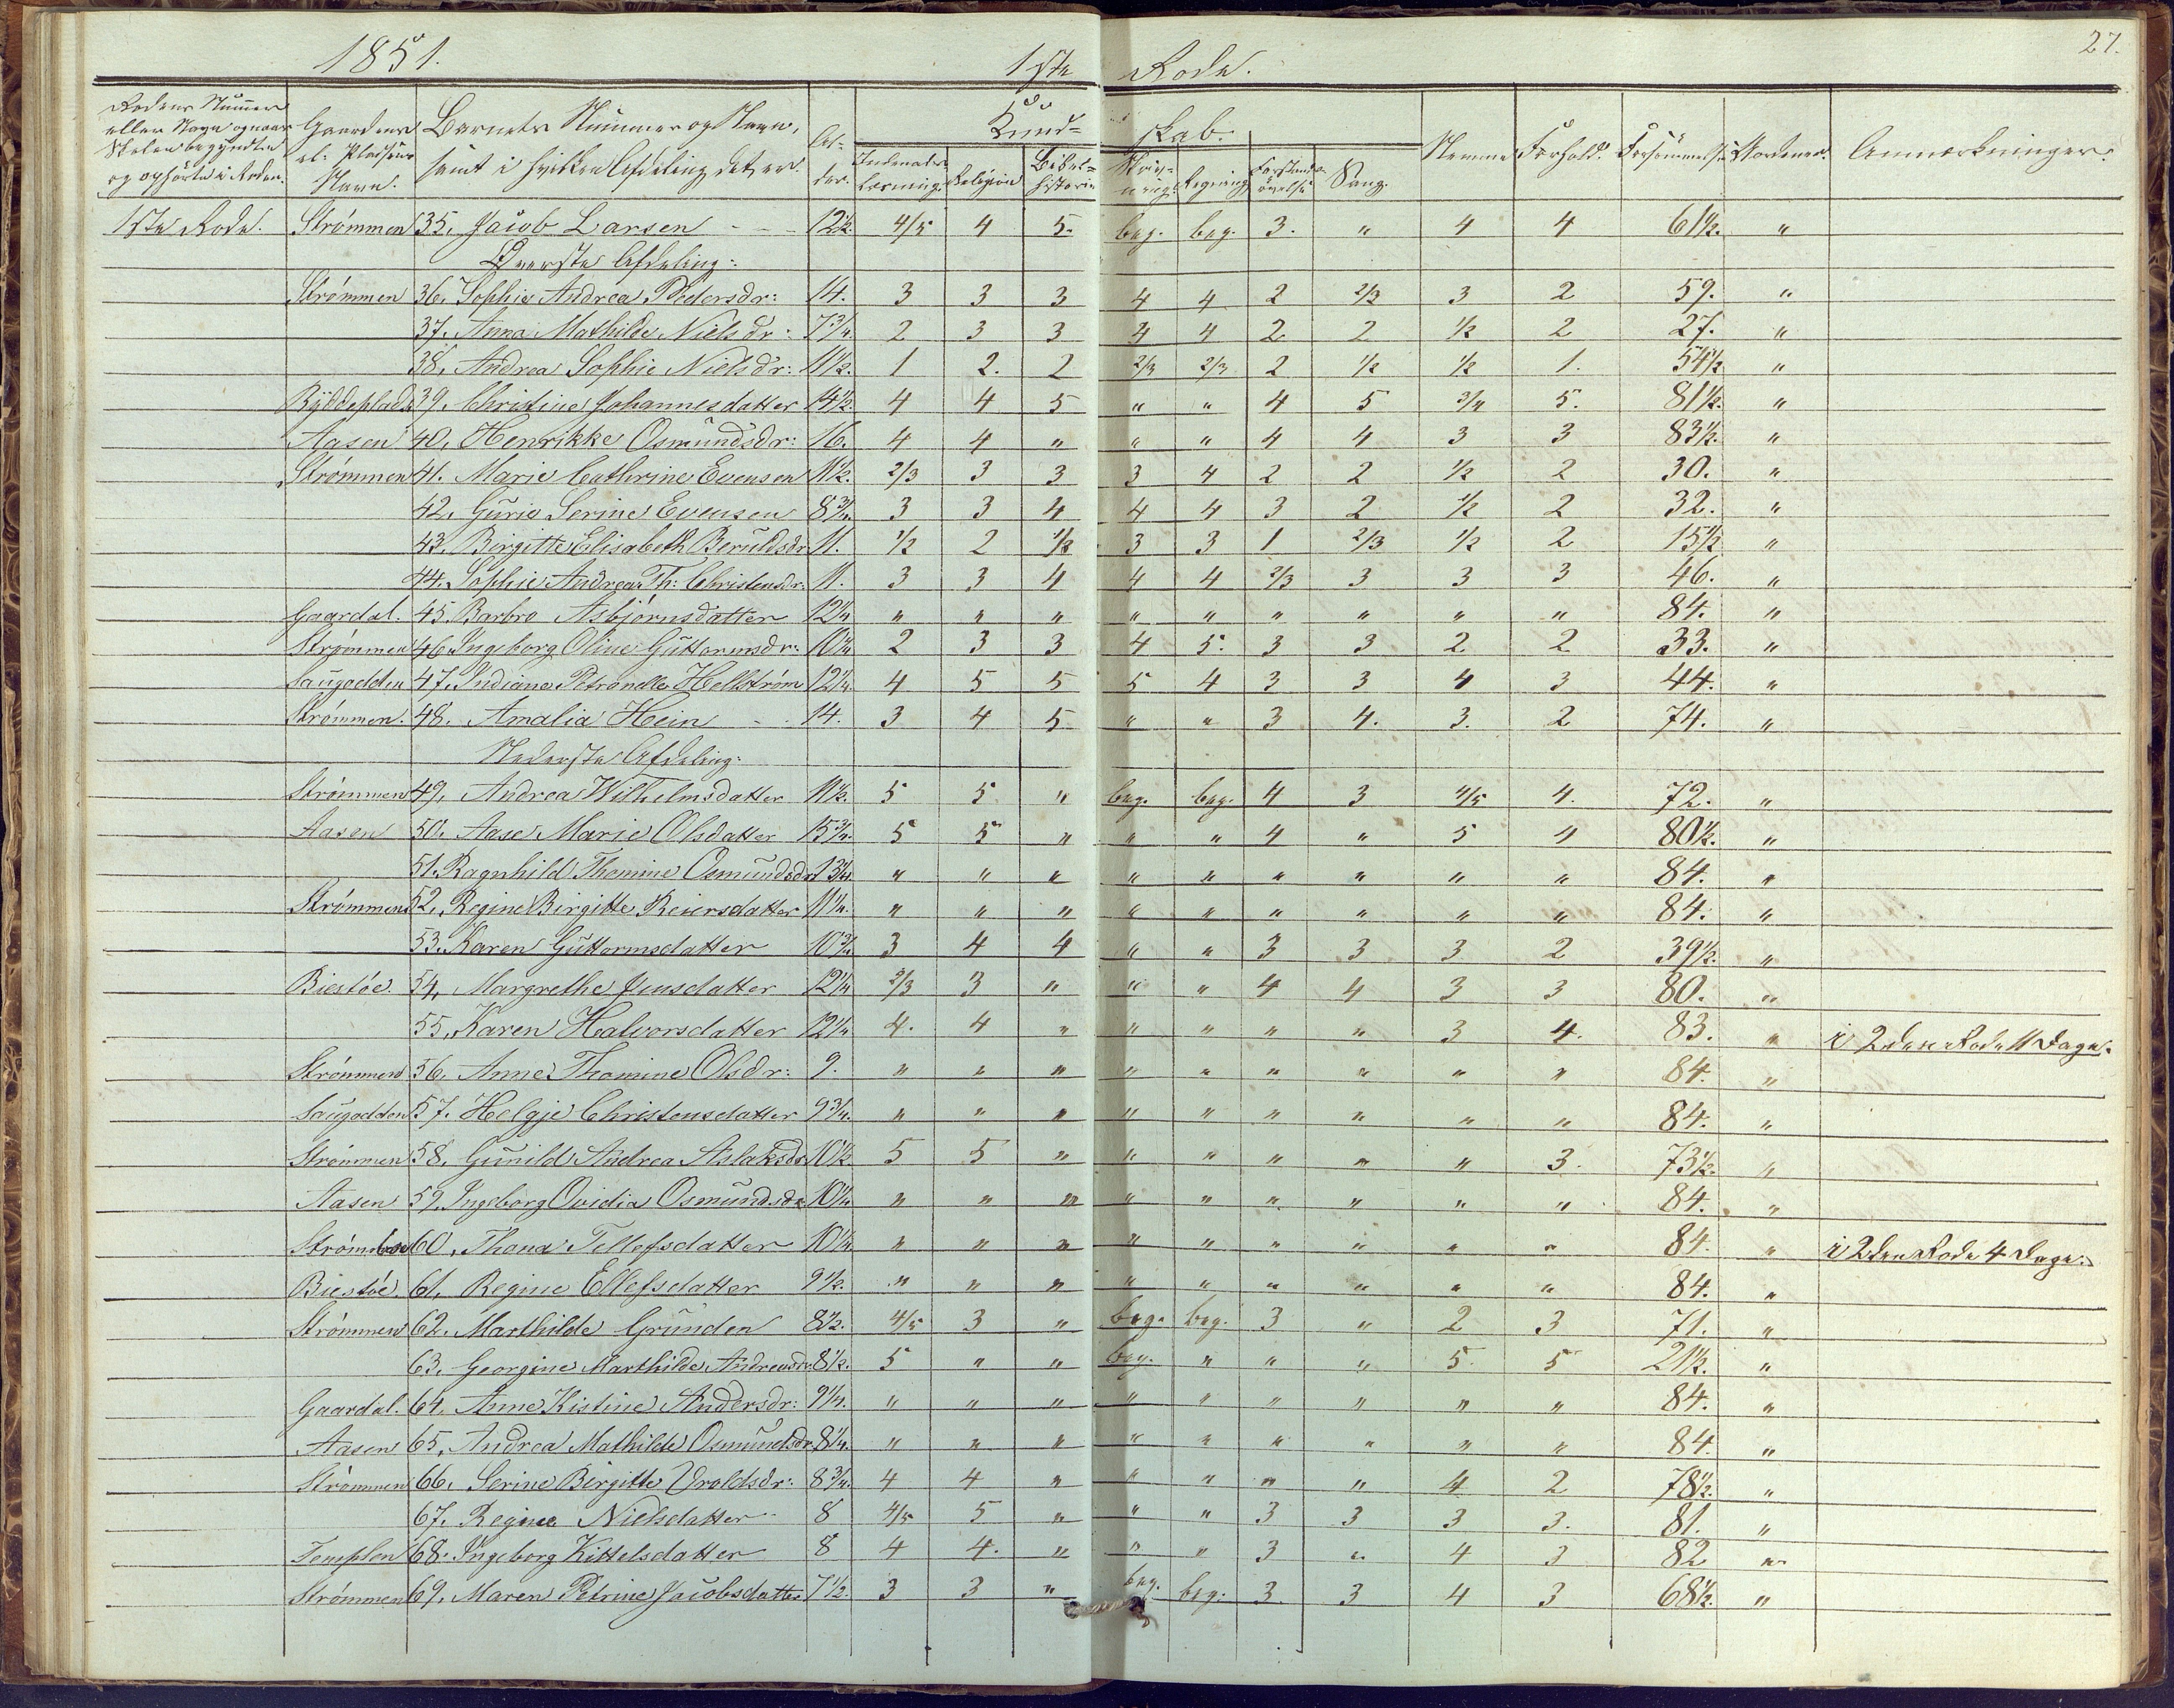 1851. 1ste Rode. 27.
Rodens Nummer eller Navn og naar Skolen begyndte og ophørte i Roden. Gaardens el: Pladsens Navn. Barnets Nummer og Navn, samt i hvilken Afdeling det er. Al- der. Kund= skab. Indenads- læsning. Religion Bibel= historie Skriv- ning. Regning Forstands- øvelse Sang. Nemme Forhold. Forsømmelse Anmærkninger.
1ste Rode. Strømmen 35. Jacob Larsen - - 12½. 4/5 4 5. beg. beg. 3. " 4 4 61½. "
Øverste Afdeling:
Strømmen 36. Sophie Andrea Pedersdr: 14. 3 3 3 4 4 2 2/3 3 2 59. "
37. Anna Mathilde Nielsdr: 7¾. 2 3 3 4 4 2 2 ½ 2 27. "
38. Andrea Sophie Nielsdr: 11½. 1 2. 2 2/3 2/3 2 ½ ½ 1. 54½ "
Ryddeplads 39. Christine Johannesdatter 14½. 4 4 5 " " 4 5 3/4 5. 81½. "
Aasen 40. Henrikke Osmundsdr: 16. 4 4 " " " 4 4 3 3 83½. "
Strømmen 41. Marie Cathrine Evensen 11½. 2/3 3 3 3 4 2 2 ½ 2 30. "
42. Gurie Serine Evensen 8¾. 3 3 4 4 4 3 2 ½ 2 32. "
43. Birgitte Elisabeth Beruldsdr 11. ½ 2 ½ 3 3 1 2/3 ½ 2 15½ "
44. Sophie Andrea Th: Christensdr: 11. 3 3 4 4 4 2/3 3 3 3 46. "
Gaardal. 45. Barbro Asbjørnsdatter 12¼ " " " " " " " " " 84. "
Strømmen 46. Ingeborg Oline Guttormsdr: 10¼ 2 3 3 4 5. 3 3 2 2 33. "
Saugodden 47. Indiana Petronelle Hellstrøm 12¼. 4 5 5 5 4 3 3 4 3 44. "
Strømmen. 48. Amalia Hein - - 14. 3 4 5 " " 3 4. 3. 2 74. "
Nederste Afdeling:
Strømmen 49. Andrea Wilhelmsdatter 11½. 5 5 " beg. beg. 4 3 4/5 4. 72. "
Aasen 50. Aase Marie Olsdatter 15¾. 5 5 " " " 4 " 5 4 80½. "
51. Ragnhild Thomine Osmundsdr 13¼. " " " " " " " " " 84. "
Strømmen 52. Regine Birgitte Reiersdatter 11¼. " " " " " " " " " 84. "
53. Karen Guttormsdatter 10¾ 3 4 4 " " 3 3 3 2 39½. "
Biestöe. 54. Margrethe Jensdatter 12¼ 2/3 3 " " " 4 4 3 3 80. "
55. Karen Halvorsdatter 12¼ 4. 4 " " " " " 3 4. 83. " i 2den Rode 11 Dage.
Strømmen 56. Anne Thomine Olsdr: 9. " " " " " " " " " 84. "
Saugodden 57. Helgje Christensdatter 9¾. " " " " " " " " " 84. "
Strømmen 58. Gunild Andrea Aslaksdr 10½ 5 5 " " " " " " 3. 73½. "
Aasen 59. Ingeborg Ovidia Osmundsdr 10¼ " " " " " " " " " 84. "
Strømsboe 60. Thona Tellefsdatter 10¼ " " " " " " " " " 84. " i 2den Rode 4 Dage.
Biestöe. 61. Regine Ellefsdatter 9½. " " " " " " " " " 84. "
Strømmen 62. Marthilde Grunden 8½. 4/5 3 " beg. beg. 3 " 2 3 71. "
63. Georgine Marthilde Andreasdr 8½. 5 " " beg. " " " 5. 5 21½. "
Gaardal. 64. Anne Kistine Andersdr: 9¼. " " " " " " " " " 84. "
Aasen 65. Andrea Mathilde Osmundsdr 8¼. " " " " " " " " " 84. "
Strømmen 66. Serine Birgitte Vroldsdr: 8¾. 4 4 " " " " " 4 2 78½. "
67. Regine Nielsdatter 8 4/5 5 " " " 3 3 3 3. 81. "
Templen 68. Ingeborg Kittelsdatter 8 4 4. " " " 3 " 4 3 82 "
Strømmen 69. Maren Petrine Jacobsdatter 7½. 3 3 " beg. beg. 3. 3 4 3 68½. "